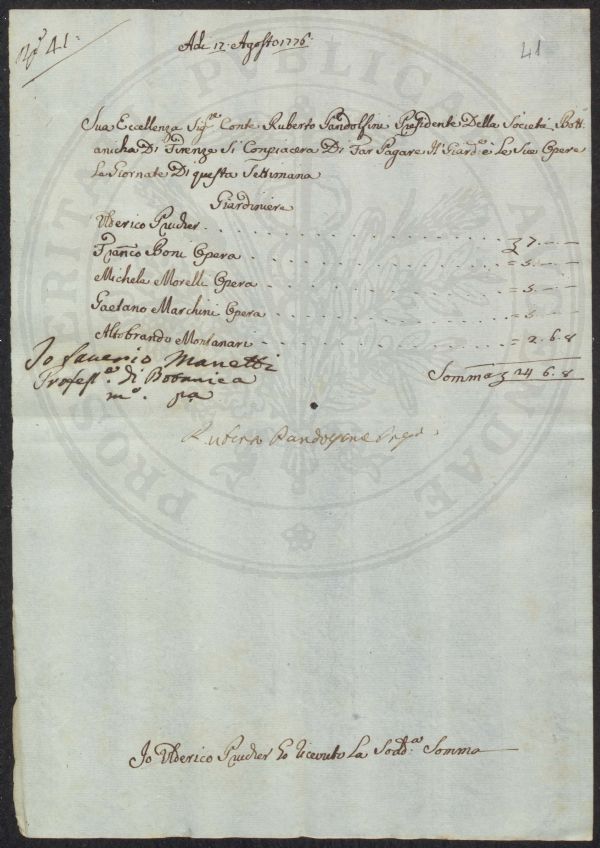 N.° 41
41
Adi 17. Agosto 1776.
Sua Eccellenza Sig.re Conte Ruberto Pandolfini Presidente Della Società Bott
anicha Di Firenze Si Conpiacera Di Far Pagare Al Giard.e e Le Sue Opere
Le Giornate Di questa Settimana
Giardiniere
Ulderico Prucher 7. — —
Franco Boni Opera = 5. — —
Michele Morelli Opera = 5. — —
Gaetano Marchini Opera = 5. — —
Altobrando Montanari = 2. 6. 8
Somma 24. 6. 8
Io Saverio Manetti
Profess.e di Botanica
m.o pa
Ruberto Pandolfini
Io Ulderico Prucher Ho Ricevuto La Sodd.a Somma
PROSPERITATI PUBLICAE AUGENDAE